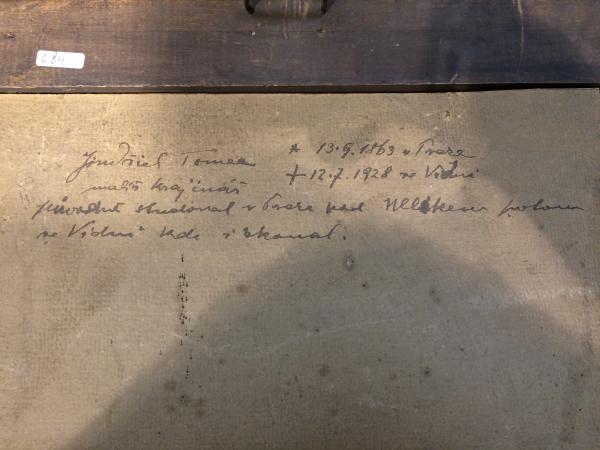 684
Jindřich Tomec * 13.9.1863 v Praze
malíř krajinář + 12.7.1928 ve Vídni
původně studoval v Praze pod Ullikem potom
ve Vídni kde i skonal.